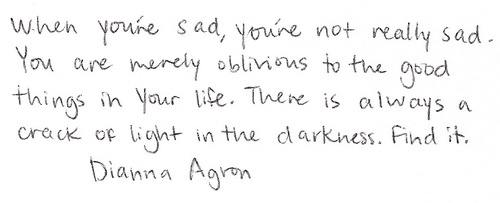 When you're sad, you're not really sad.
You are merely oblivious to the good
things in your life. There is always a
crack of light in the darkness. Find it.
Dianna Agron